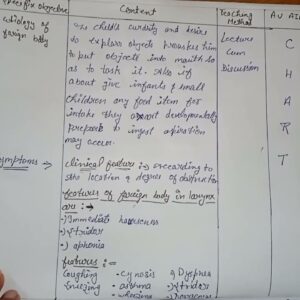 Specific objective
Content
Teaching Method
A V Aids
etiology of
foreign body
The child's curosity and desire
to explore objects provokes him
to put objects into mouth so
as to taste it. Also if
about give infants & small
children any food item for
intake they are not developmentally
prepared to ingest aspiration
may occur.
Lecture
Cum
Discussion
C
H
A
R
T
Symptoms
clinical feature :-> according to
the location & degree of obstruction
features of foreign body in larynx
are :->
Immediate hoarseness
stridor
aphonia
features :-
Coughing - Cynosis Dyspnea
Sneezing - asthma Stridor